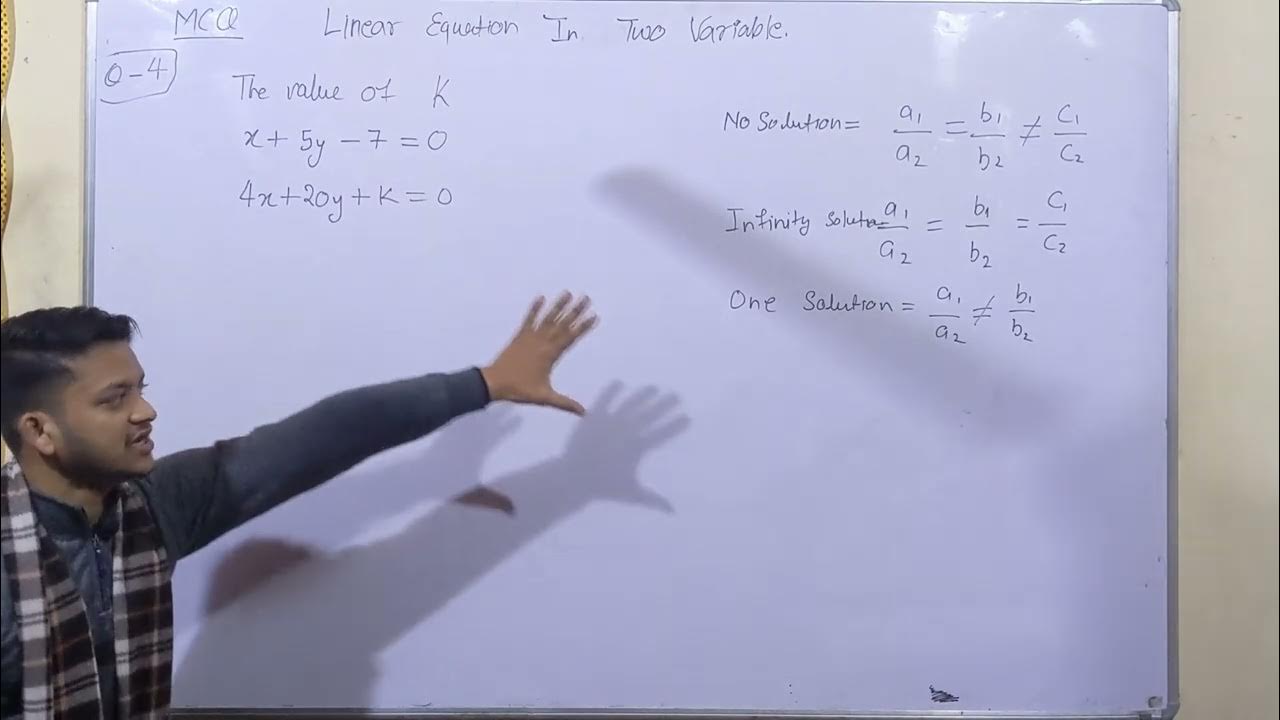 MCQ Linear Equation In Two Variable.
Q-4
The value of K
x + 5y - 7 = 0
4x+20y+K=0
No Solution = a₁/a₂ = b₁/b₂ ≠ C₁/C₂
Infinity Solution a₁/a₂ = b₁/b₂ = C₁/C₂
One Solution = a₁/a₂ ≠ b₁/b₂